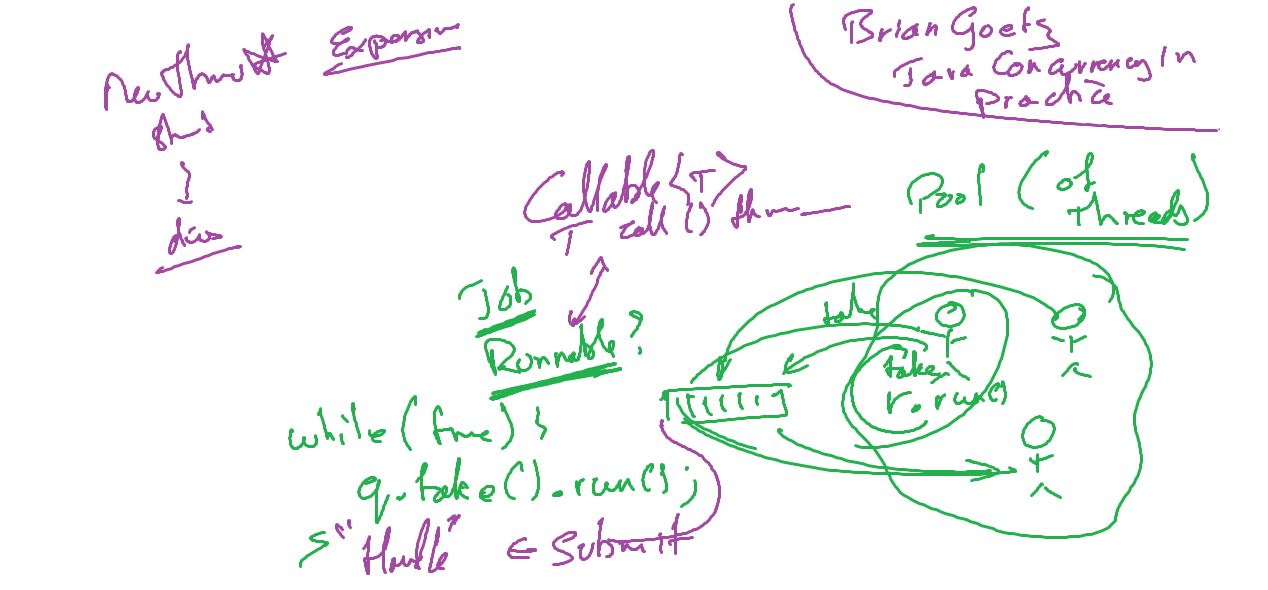 New Thread
Expensive
Brian Goetz
Java Concurrency In
Practice
Callable<T>
T call()
Pool (of
Threads)
Job
Runnable?
take
take
r.run()
while(true) {
q.take().run();
}
"Handle" ← Submit